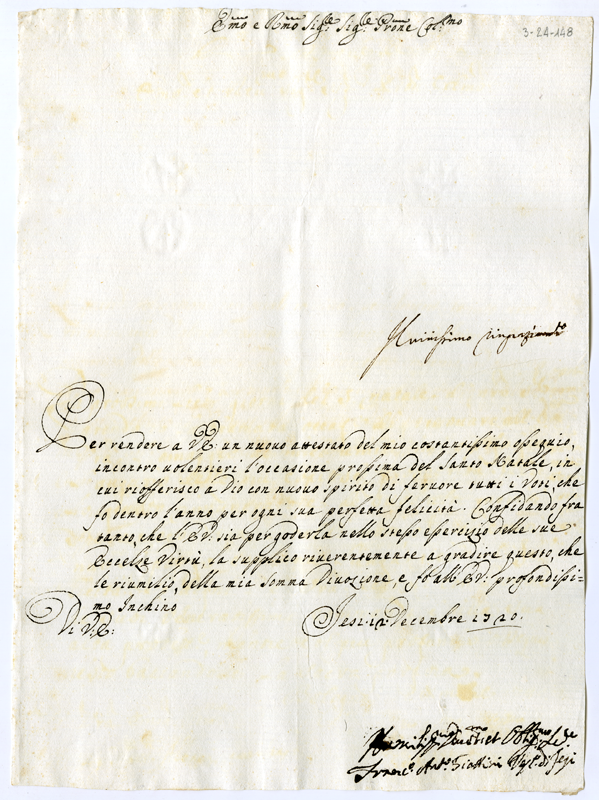 Emo e Rmo Sigre Sigre Prone Colmo
3-24-148
Per rendere a V.E: un nuovo attestato del mio costantissimo ossequio,
incontro uolentieri l'occasione prossima del Santo Natale, in
cui riofferisco a Dio con nuouo spirito di feruore tutti i Voti, che
fo dentro l'anno per ogni sua perfetta felicità. Confidando fra
tanto, che l'E.V: sia per goderla nello stesso esercisio delle sue
Eccelse Virtù, la supplico riuerentemente a gradire questo, che
le riumilio, della mia somma Diuozione e fo all'E.V: profondissi-
mo Inchino
Di V.E:
Jesi: 12: Decembre 1720.
Franco Anto
di Jesi